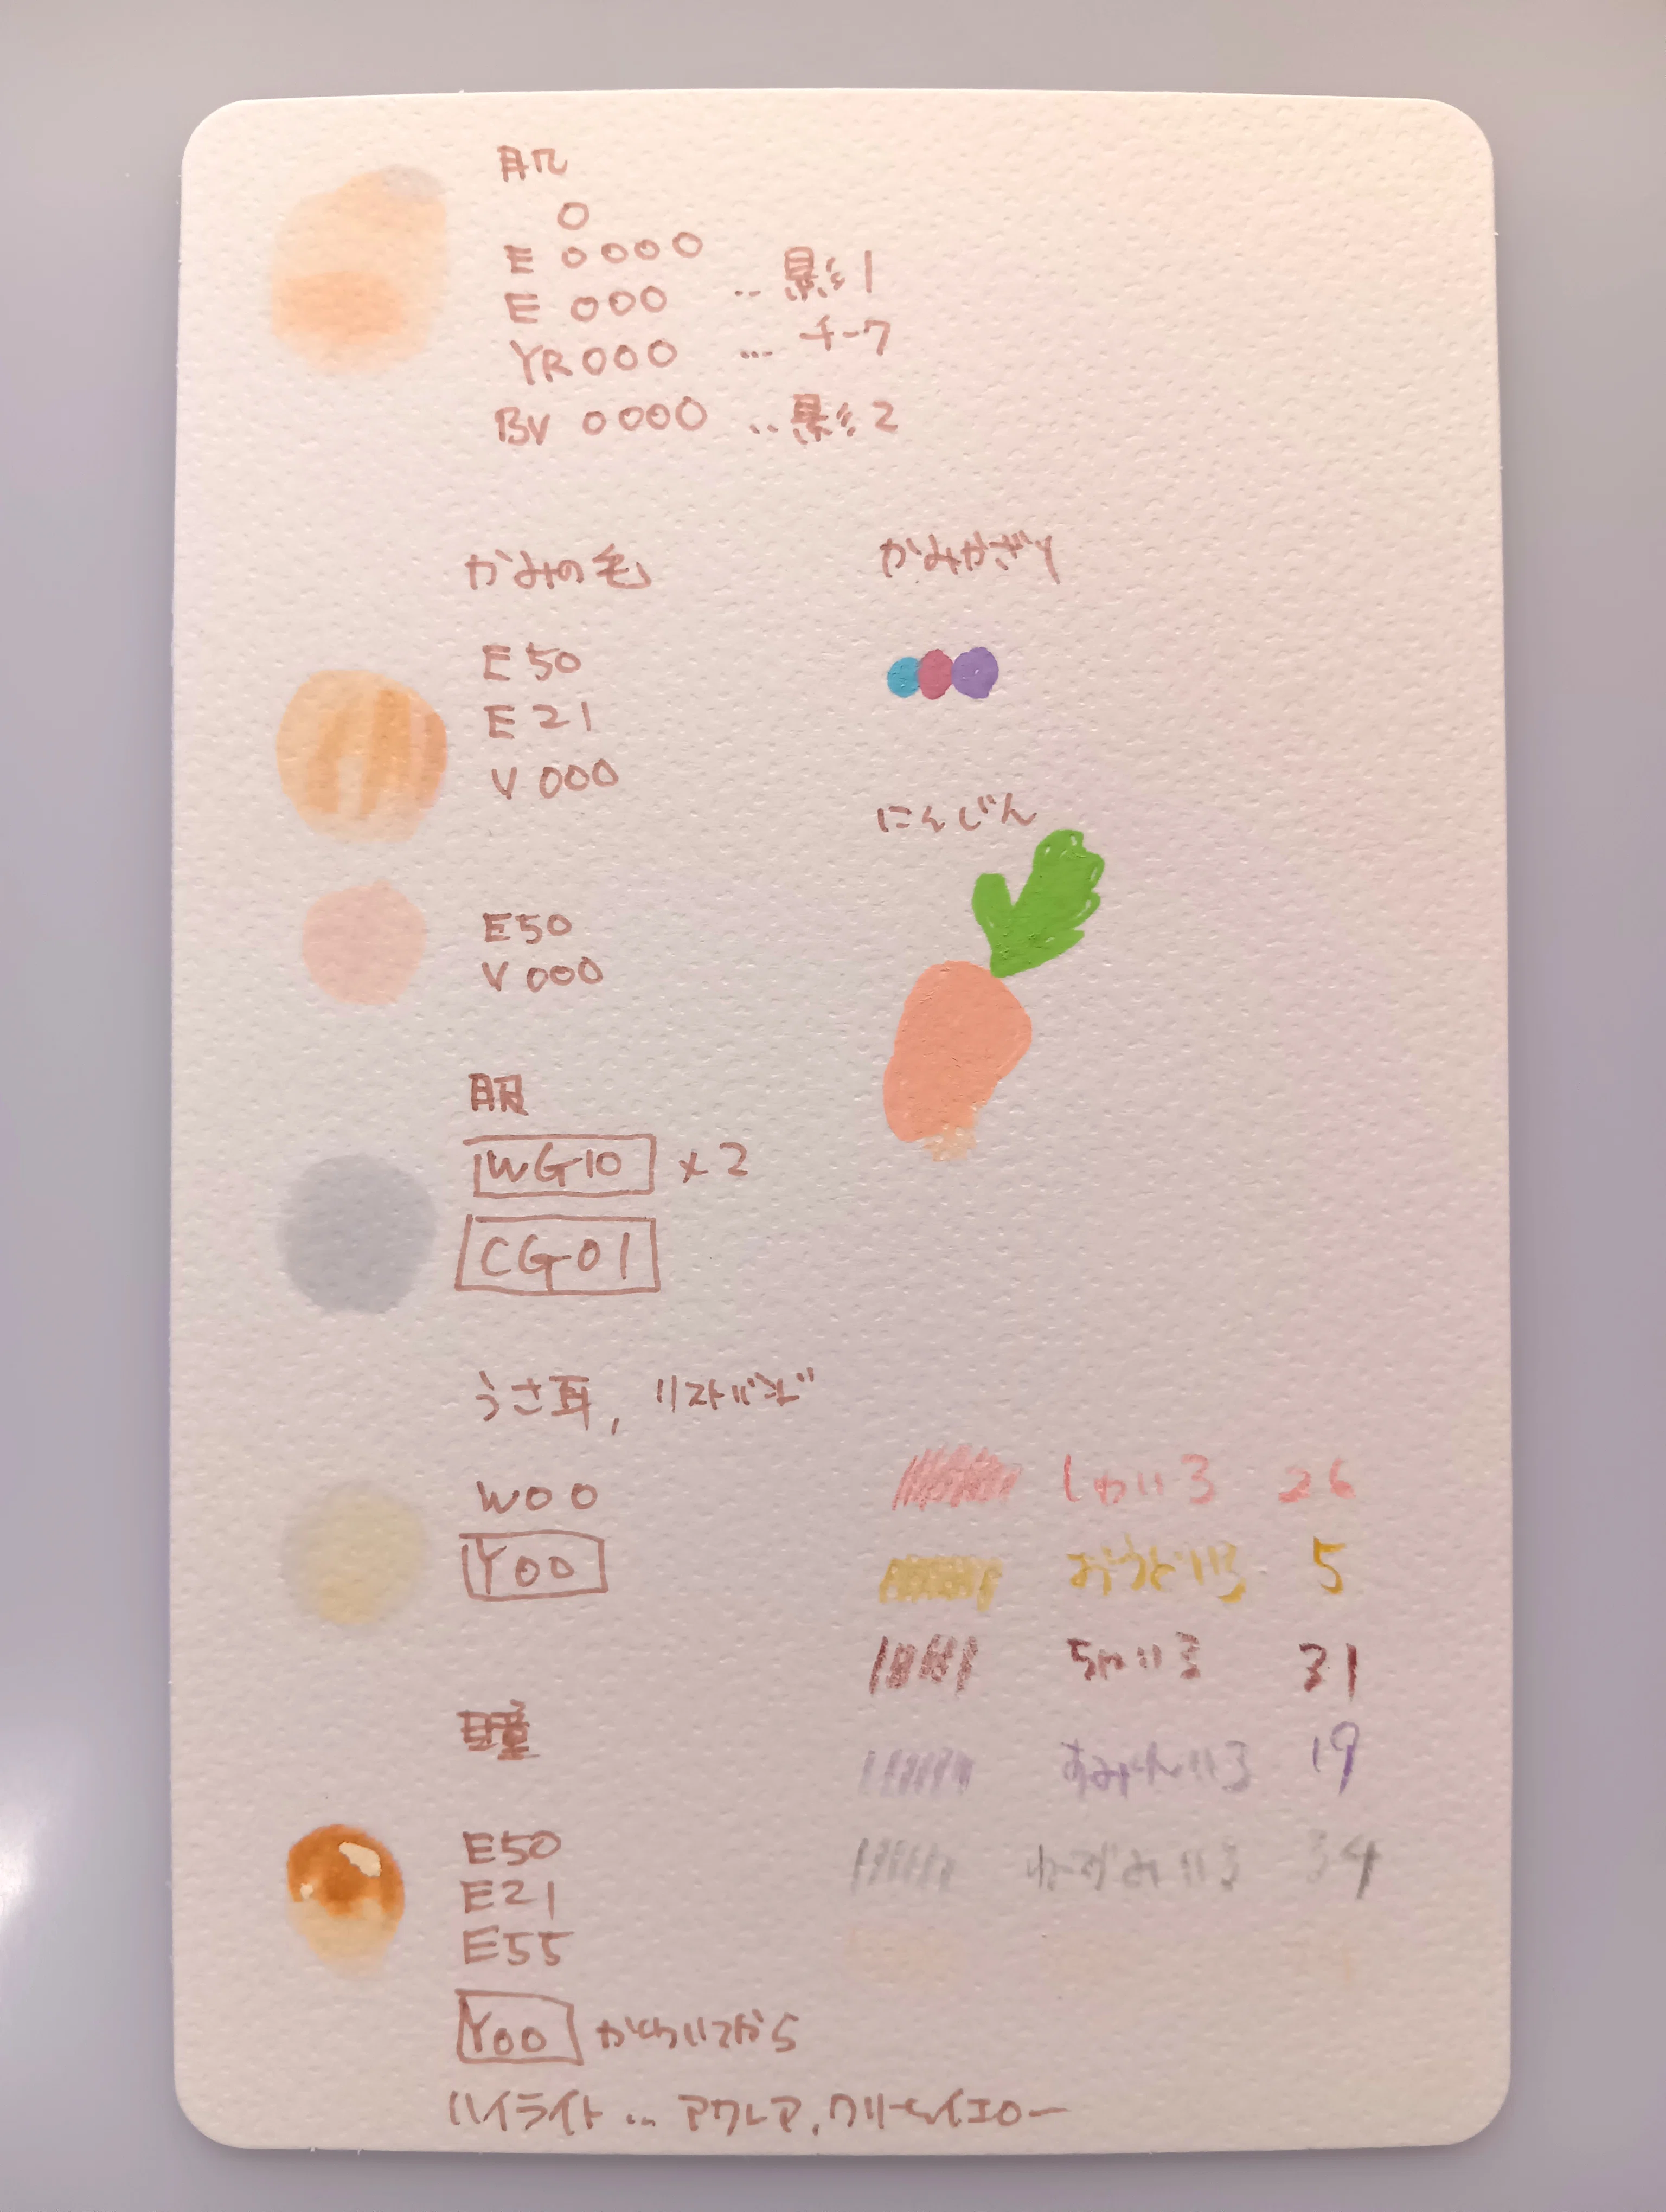 肌
0
E 0000
E 000 ‥ 影1
YR000 … チーク
BV 0000 ‥ 影2
かみの毛
E50
E21
V000
E50
V000
服
WG10 ×2
CG01
うさ耳, リストバンド
W00
Y00
瞳
E50
E21
E55
Y00 かわいてから
ハイライト … アクレア, クリームイエロー
かみかざり
にんじん
しゅいろ 26
おうどいろ 5
ちゃいろ 31
すみれいろ 19
ねずみいろ 34